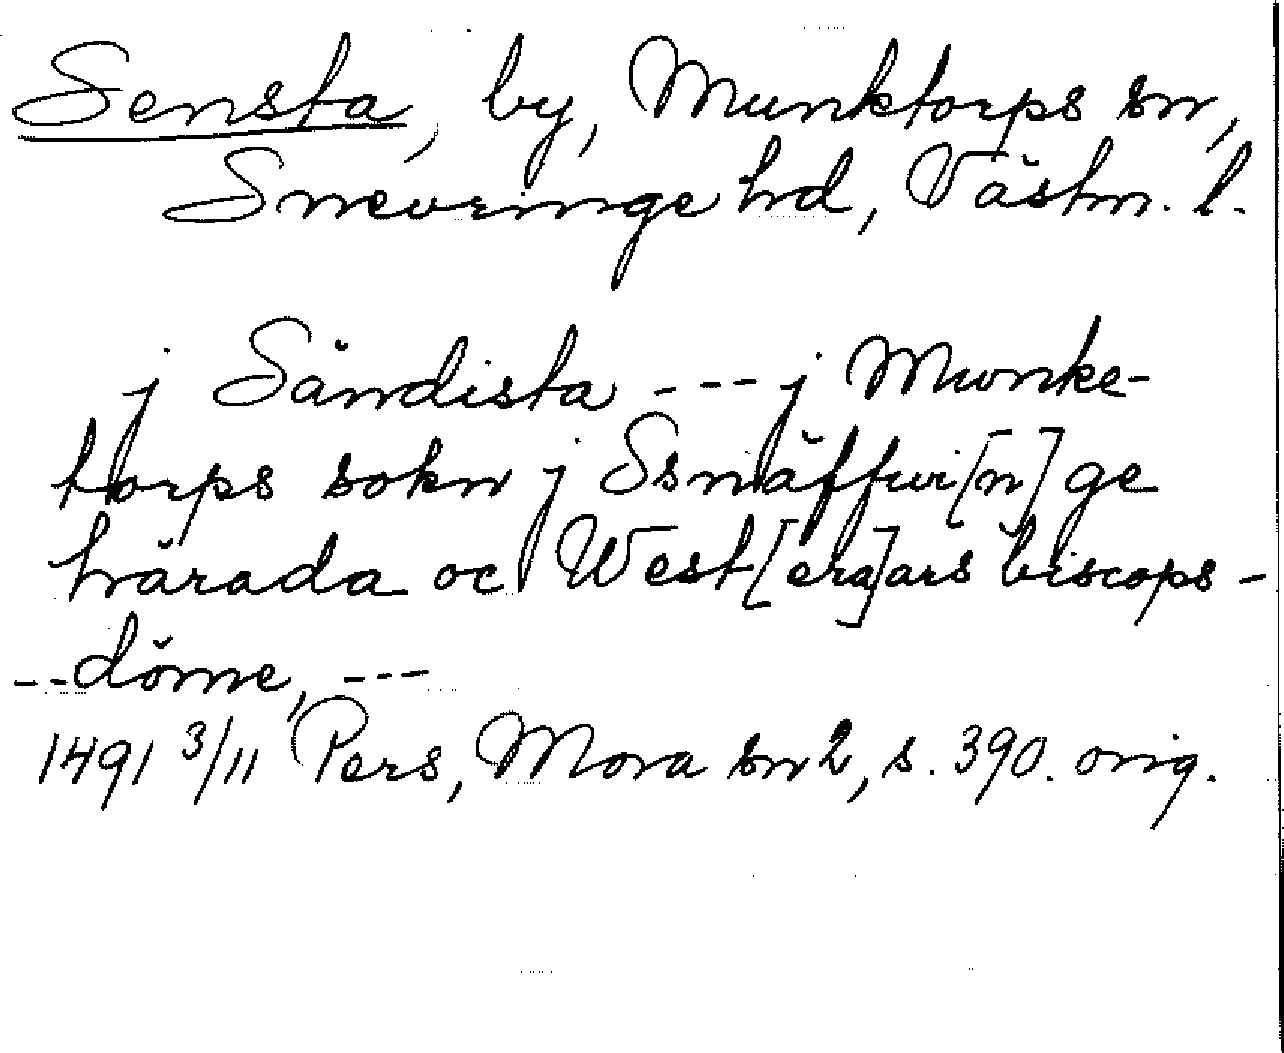 Sensta, by, Munktorps sn,
Snevringe hd, Västm. l.
j Sändista --- j Munke-
torps sokn j Ssnäffwi[n]ge
härada oc West[era]ars biscops-
--döme, ---
1491 3/11 Pers, Mora sn 2, s. 390. orig.